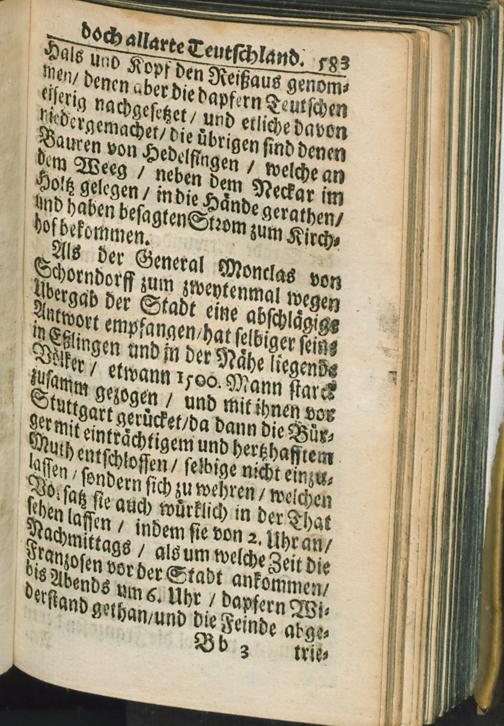 doch allarte Teutschland. 583
Hals und Kopf den Reißaus genom⸗
men/ denen aber die dapfern Teutschen
eiferig nachgesetzet/ und etliche davon
niedergemachet/ die übrigen sind denen
Bauren von Hedelfingen / welche an
dem Weeg / neben dem Neckar im
Holtz gelegen / in die Hände gerathen/
und haben besagten Strom zum Kirch⸗
hof bekommen.
Als der General Monclas von
Schorndorff zum zweytenmal wegen
Übergab der Stadt eine abschlägige
Antwort empfangen/ hat selbiger seine
in Eßlingen und in der Nähe liegende
Völker / etwann 1500. Mann starck
zusamm gezogen / und mit ihnen vor
Stuttgart gerücket/ da dann die Bür⸗
ger mit einträchtigem und hertzhafftem
Muth entschlossen / selbige nicht einzu⸗
lassen / sondern sich zu wehren / welchen
Vorsatz sie auch würklich in der That
sehen lassen / indem sie von 2. Uhr an/
Nachmittags / als um welche Zeit die
Franzosen vor der Stadt ankommen/
bis Abends um 6. Uhr / dapfern Wi⸗
derstand gethan/ und die Feinde abge⸗
Bb 3 trie⸗